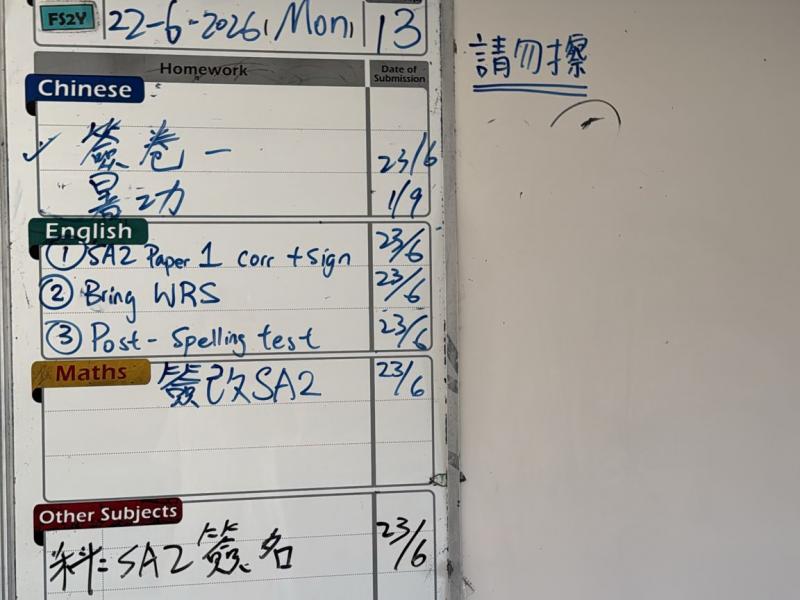 FS2Y 22-6-2026, Mon, 13
Homework Date of Submission
Chinese
✓ 簽卷一 23/6
暑功 1/9
English
① SA2 Paper 1 corr + sign 23/6
② Bring WRS 23/6
③ Post-Spelling test 23/6
Maths
簽改SA2 23/6
Other Subjects
科: SA2簽名 23/6
請勿擦